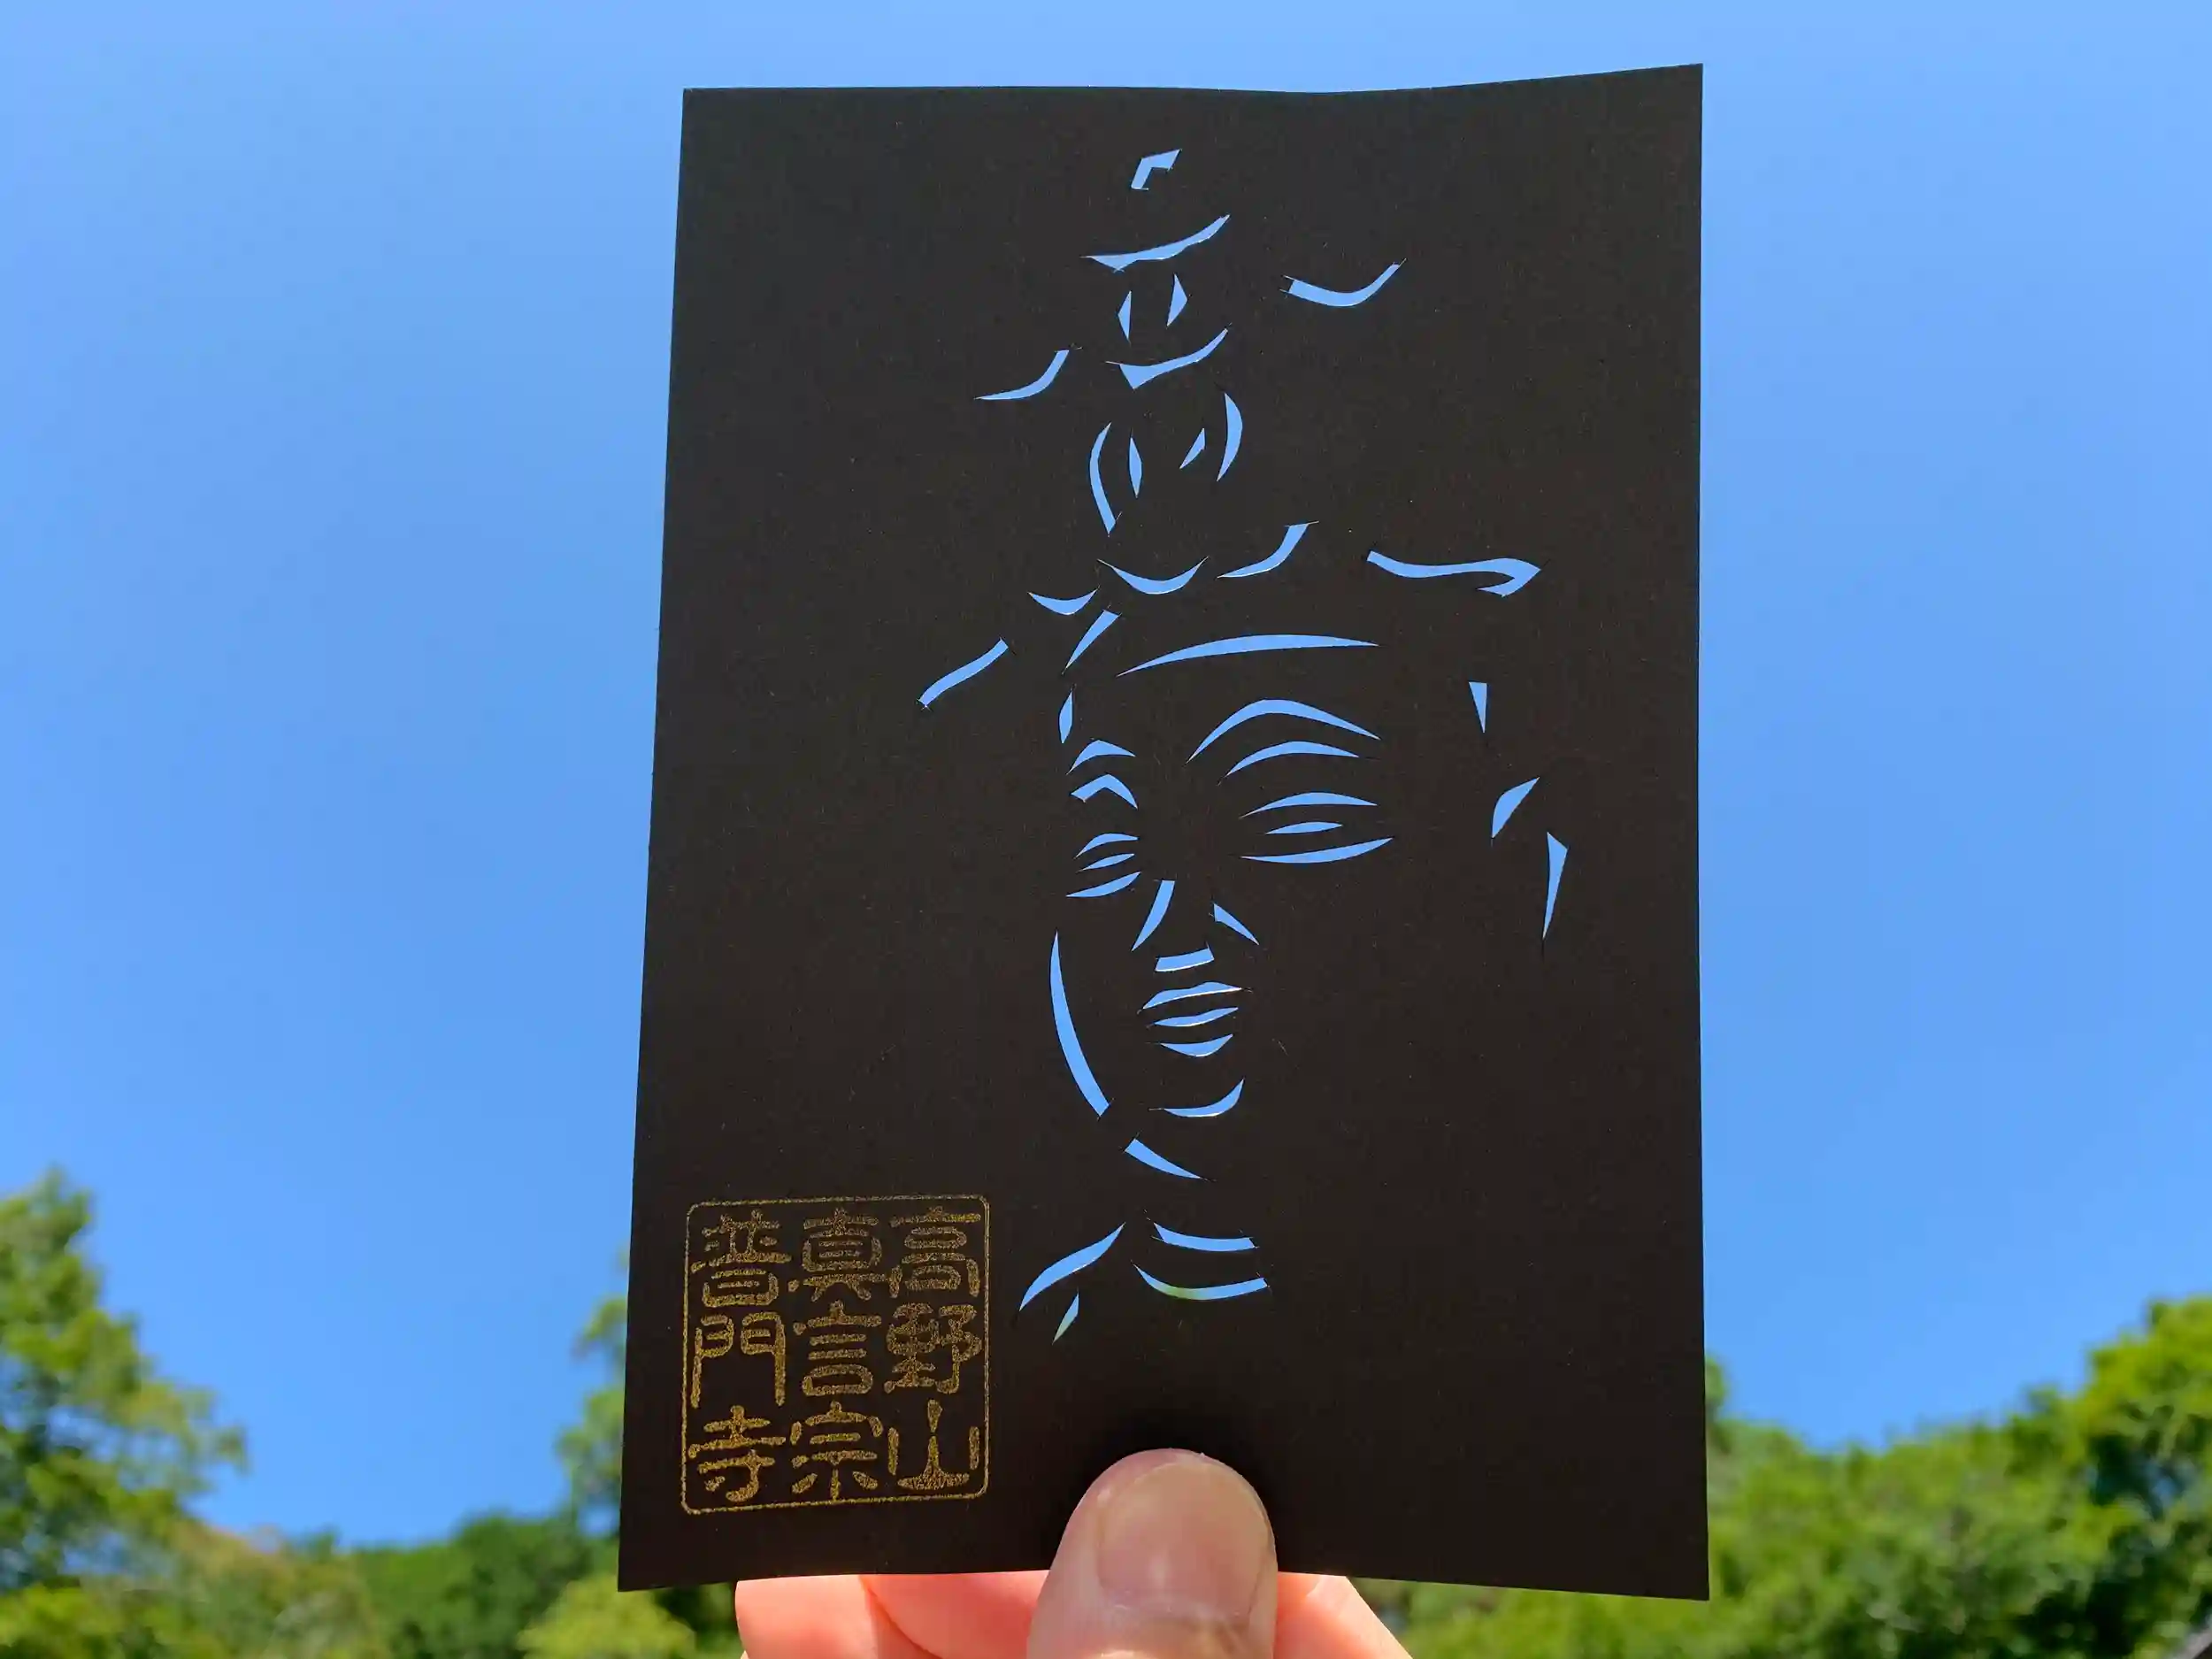 高野山
真言宗
普門寺